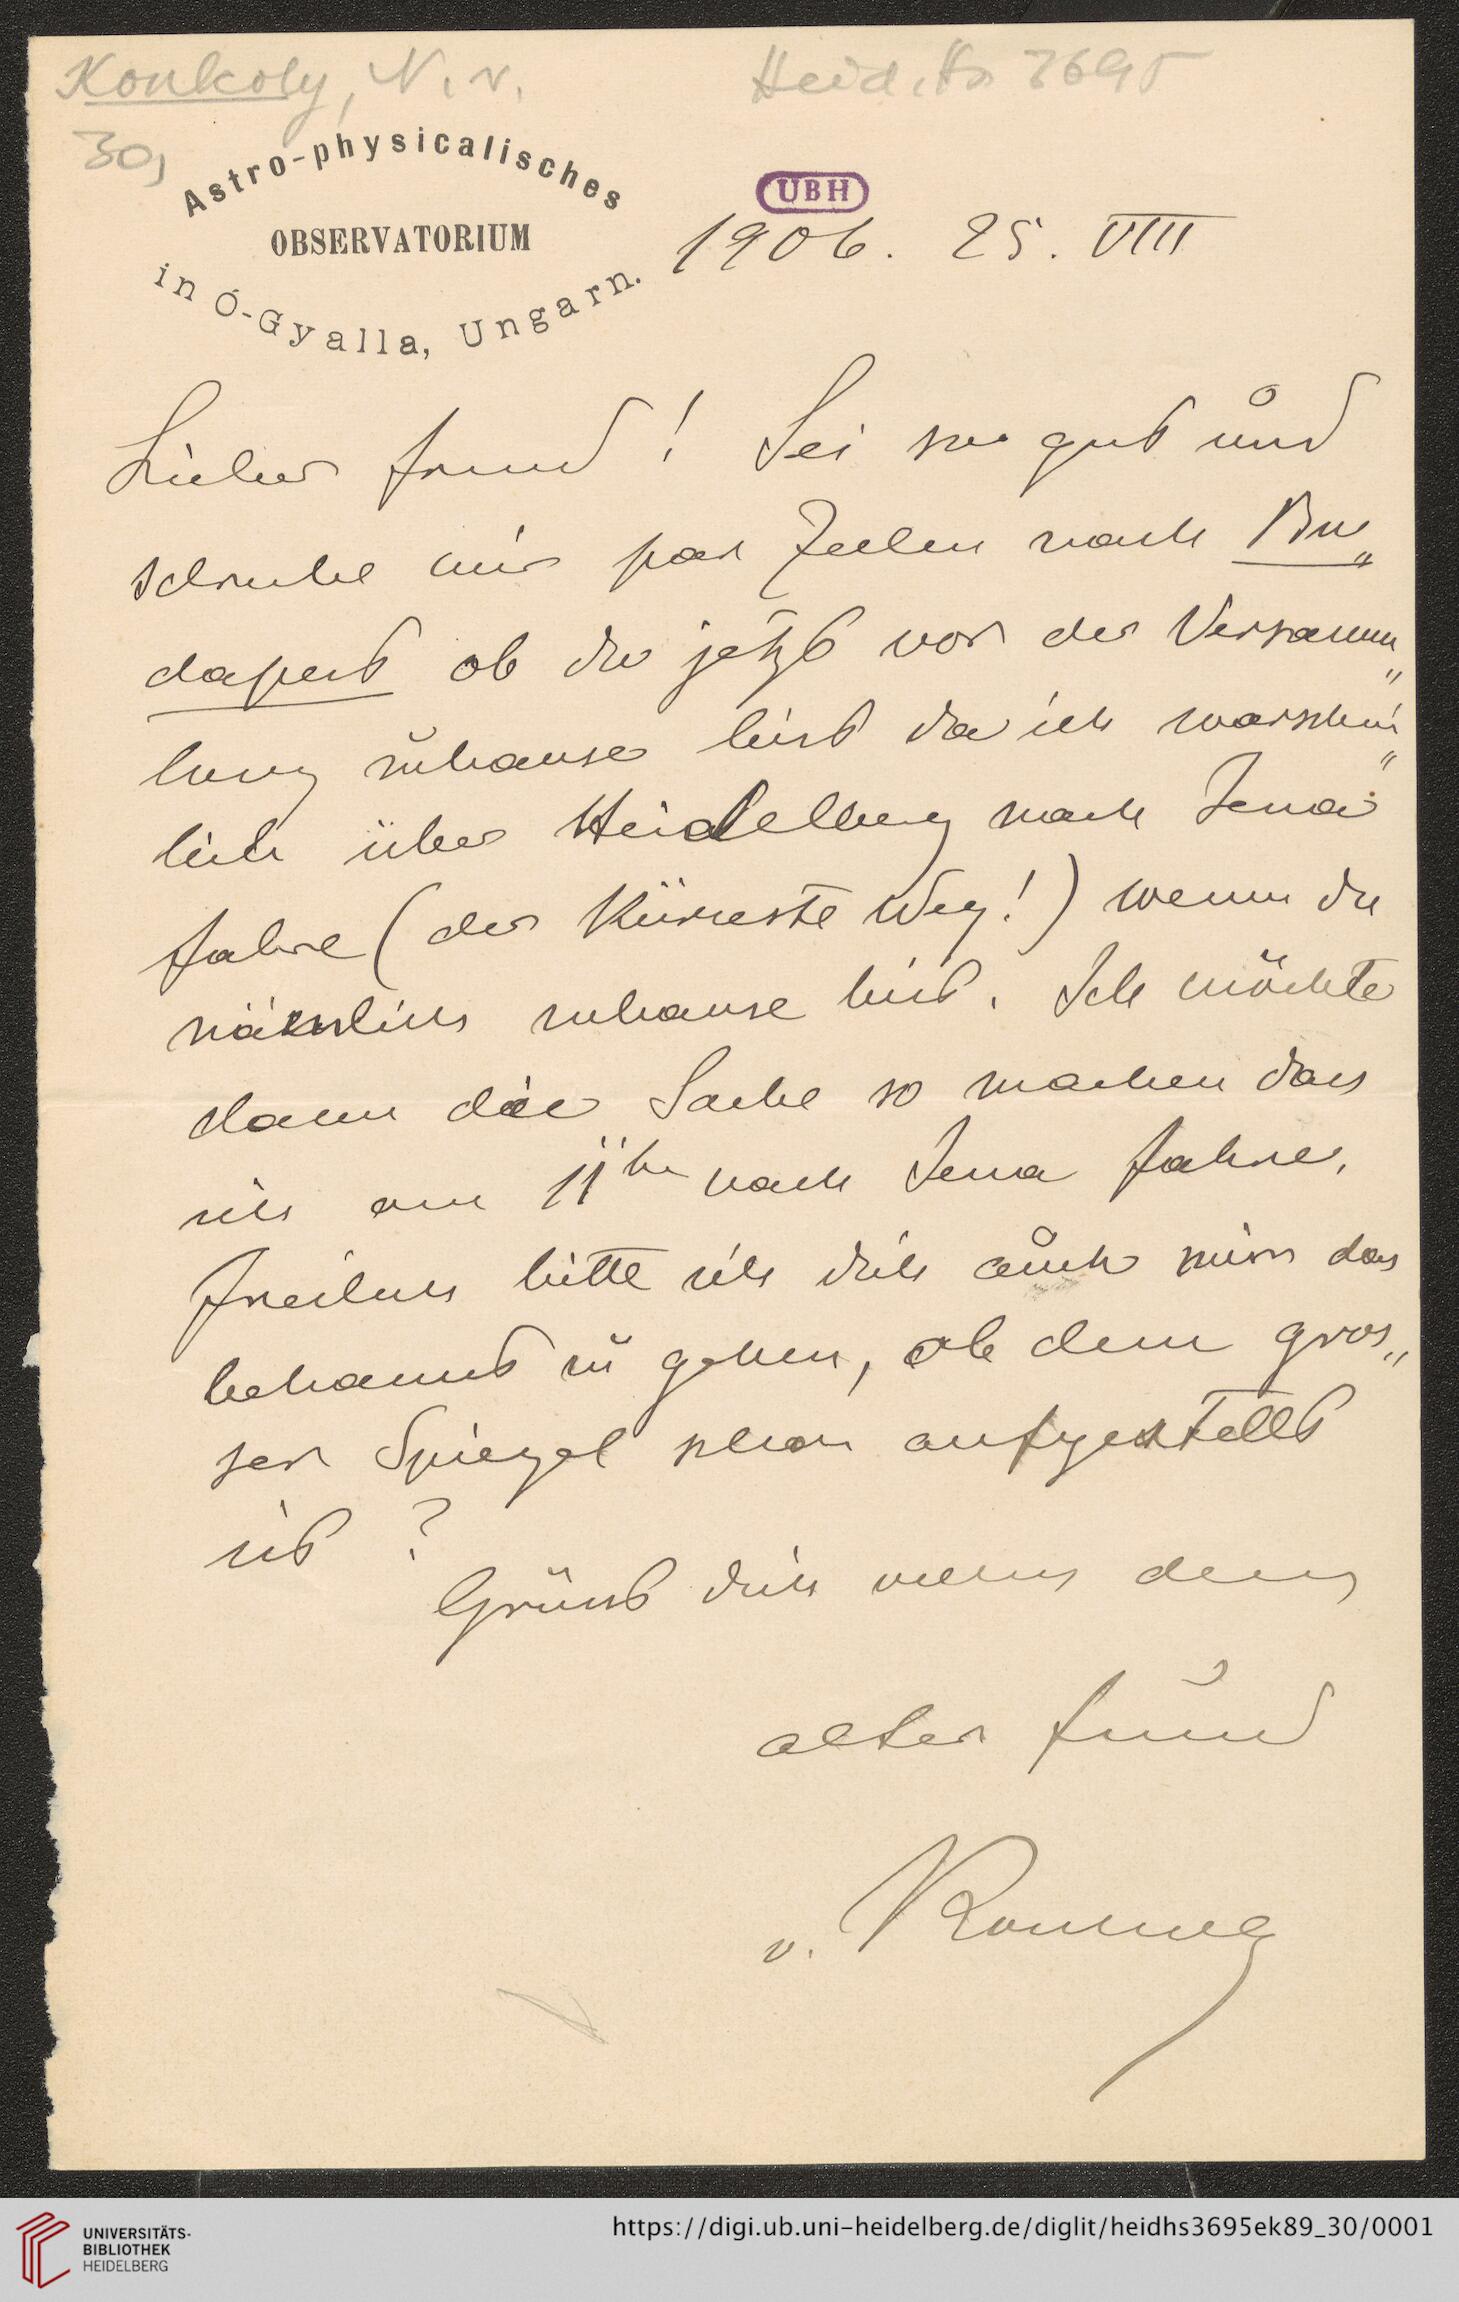 Konkoly, N. v.
Heid. Hs. 3695
30,
Astro-physicalisches
OBSERVATORIUM
in Ó-Gyalla, Ungarn.
UBH
1906. 25. VIII
Lieber Freund! Sei so gut und
schreibe mir par Zeilen nach Bu„
dapest ob du jetzt vor der Versamm„
lung zuhause bist da ich warschein„
lich über Heidelberg nach Jena
fahre (der Kürzeste Weg!) wenn du
nämlich zuhause bist. Ich möchte
dann die Sache so machen das
ich am 11ten nach Jena fahre.
Freilich bitte ich dich auch mir das
bekannt zu geben, ob dein gros„
ser Spiegel schon aufgestellt
ist?
Grüsst dich dein
alter Freund
v. Konkoly
UNIVERSITÄTS-
BIBLIOTHEK
HEIDELBERG
https://digi.ub.uni-heidelberg.de/diglit/heidhs3695ek89_30/0001